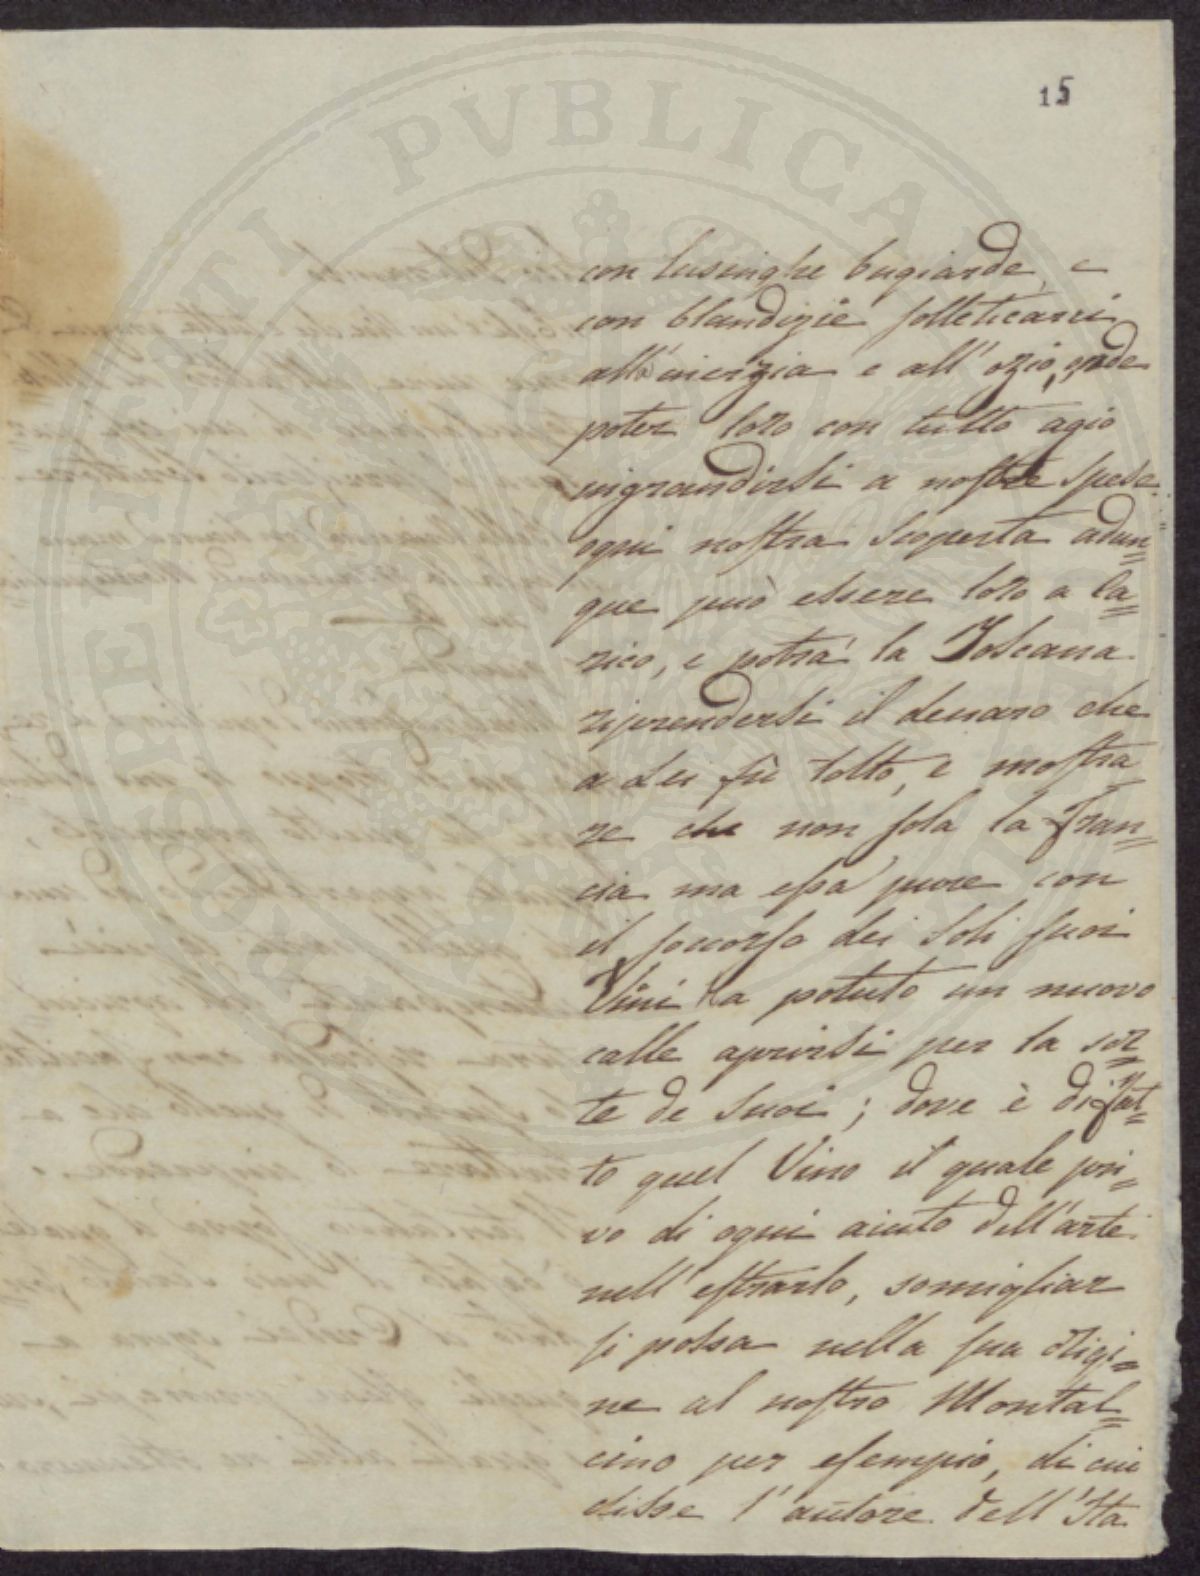 15
con lusinghe bugiarde, e
con blandizie solleticarci
all'inerzia e all'ozio, onde
poter loro con tutto agio
ingrandirsi a nostre spese.
ogni nostra scoperta adun=
que può essere loro a ca=
rico, e potrà la Toscana
riprendersi il denaro che
a Lei fù tolto, e mostra
re che non sola la Fran=
cia ma essa pure con
il soccorso dei soli suoi
Vini ha potuto un nuovo
calle aprirsi per la sor=
te de Suoi; dove è difat=
to quel Vino il quale pri=
vo di ogni aiuto dell'arte
nell'estrarlo, somigliar
si possa nella sua origi=
ne al nostro Montal=
cino per esempio, di cui
disse l'autore dell'Ita
PERITATI PVBLICAE